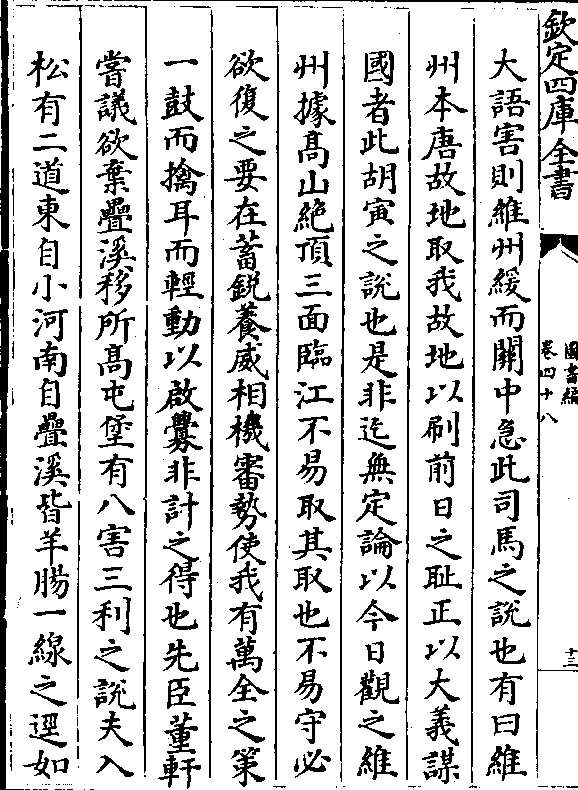 欽定四庫全書
圖書編
卷四十八
十三
大語害則維州緩而關中急此司馬之說也有曰維
州本唐故地取我故地以刷前日之恥正以大義謀
國者此胡寅之說也是非迄無定論以今日觀之維
州據髙山絶頂三面臨江不易取其取也不易守必
欲復之要在蓄鋭養威相機審勢使我有萬全之策
一鼓而擒耳而輕動以啟釁非計之得也先臣董軒
嘗議欲棄疊溪移所髙屯堡有八害三利之說夫入
松有二道東自小河南自疊溪皆羊腸一線之逕如